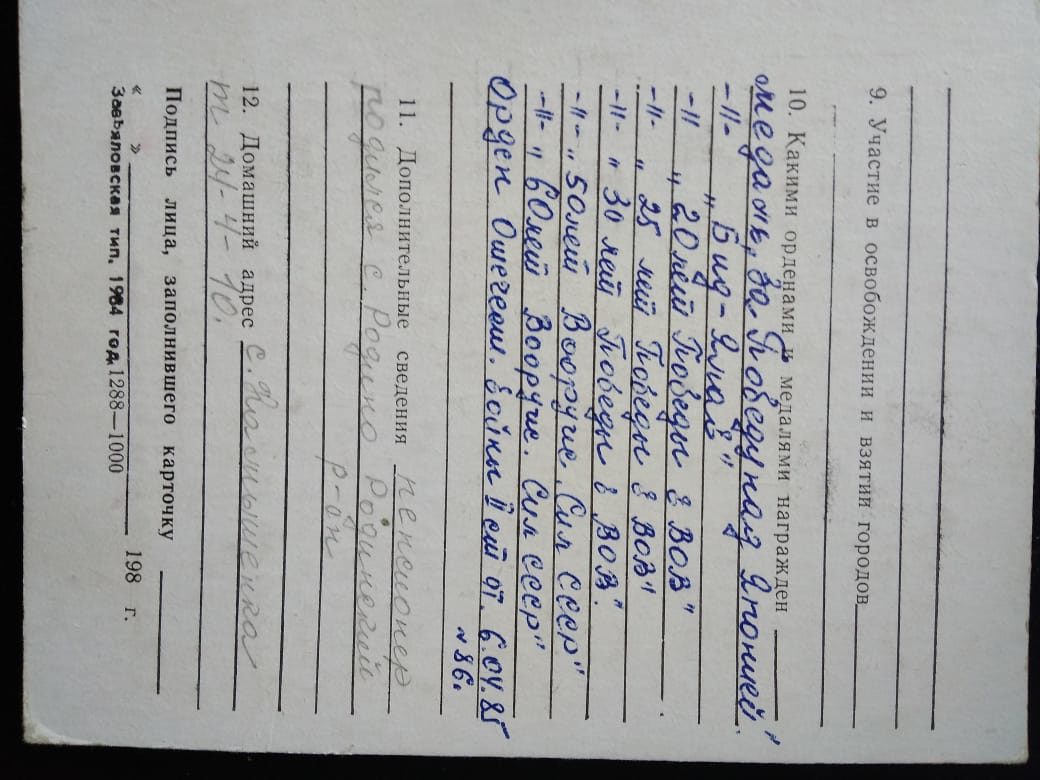 9. Участие в освобождении и взятии городов
10. Какими орденами и медалями награжден
медаль „За Победу над Японией"
-"- „
-" „20 лет Победы в ВОВ"
-"- „ 25 лет Победы в ВОВ"
-"- „ 30 лет Победы в ВОВ".
-"- „50 лет Вооруже. Сил СССР"
-"- „ 60 лет Вооруже. Сил СССР"
Орден Отечест. войны II ст от. 6.04.85
№86.
11. Дополнительные сведения пенсионер
родился с. Родино Родинский
р-он
12. Домашний адрес с.
т 24-4-10.
Подпись лица, заполнившего карточку
« » 198 г.
Завьяловская тип. 1984 год. 1288—1000